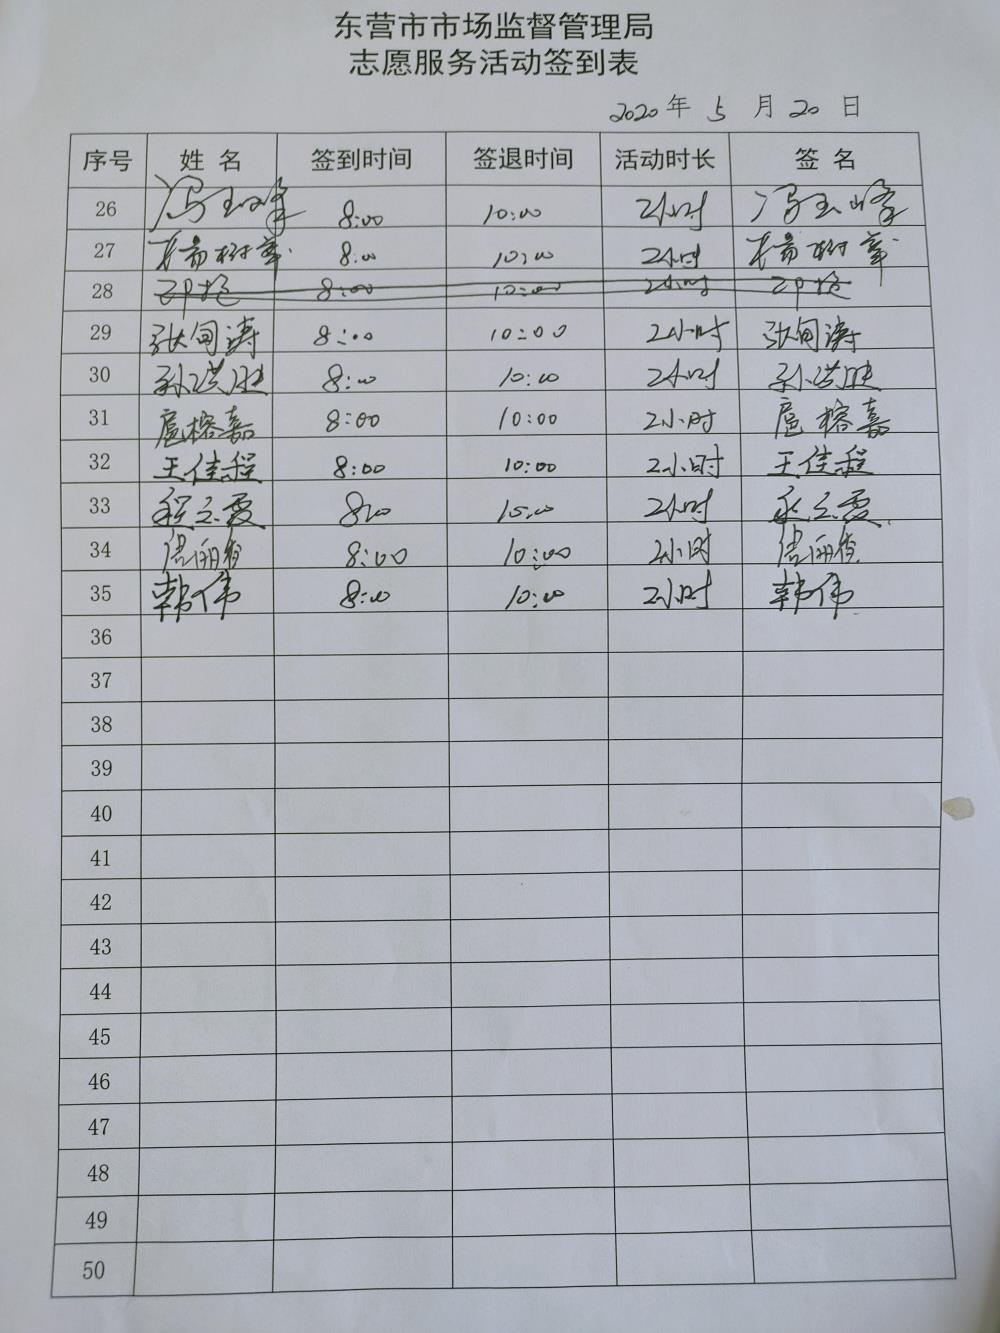 东营市市场监督管理局
志愿服务活动签到表
2020年 5 月 20 日
序号 姓 名 签到时间 签退时间 活动时长 签 名
26 冯玉峰 8:00 10:00 2小时 冯玉峰
27 8:00 10:00 2小时
28 8:00 10:00 2小时
29 张甸涛 8:00 10:00 2小时 张甸涛
30 孙洪胜 8:00 10:00 2小时 孙洪胜
31 扈榕嘉 8:00 10:00 2小时 扈榕嘉
32 王佳程 8:00 10:00 2小时 王佳程
33 8:00 10:00 2小时
34 8:00 10:00 2小时
35 韩伟 8:00 10:00 2小时 韩伟
36
37
38
39
40
41
42
43
44
45
46
47
48
49
50